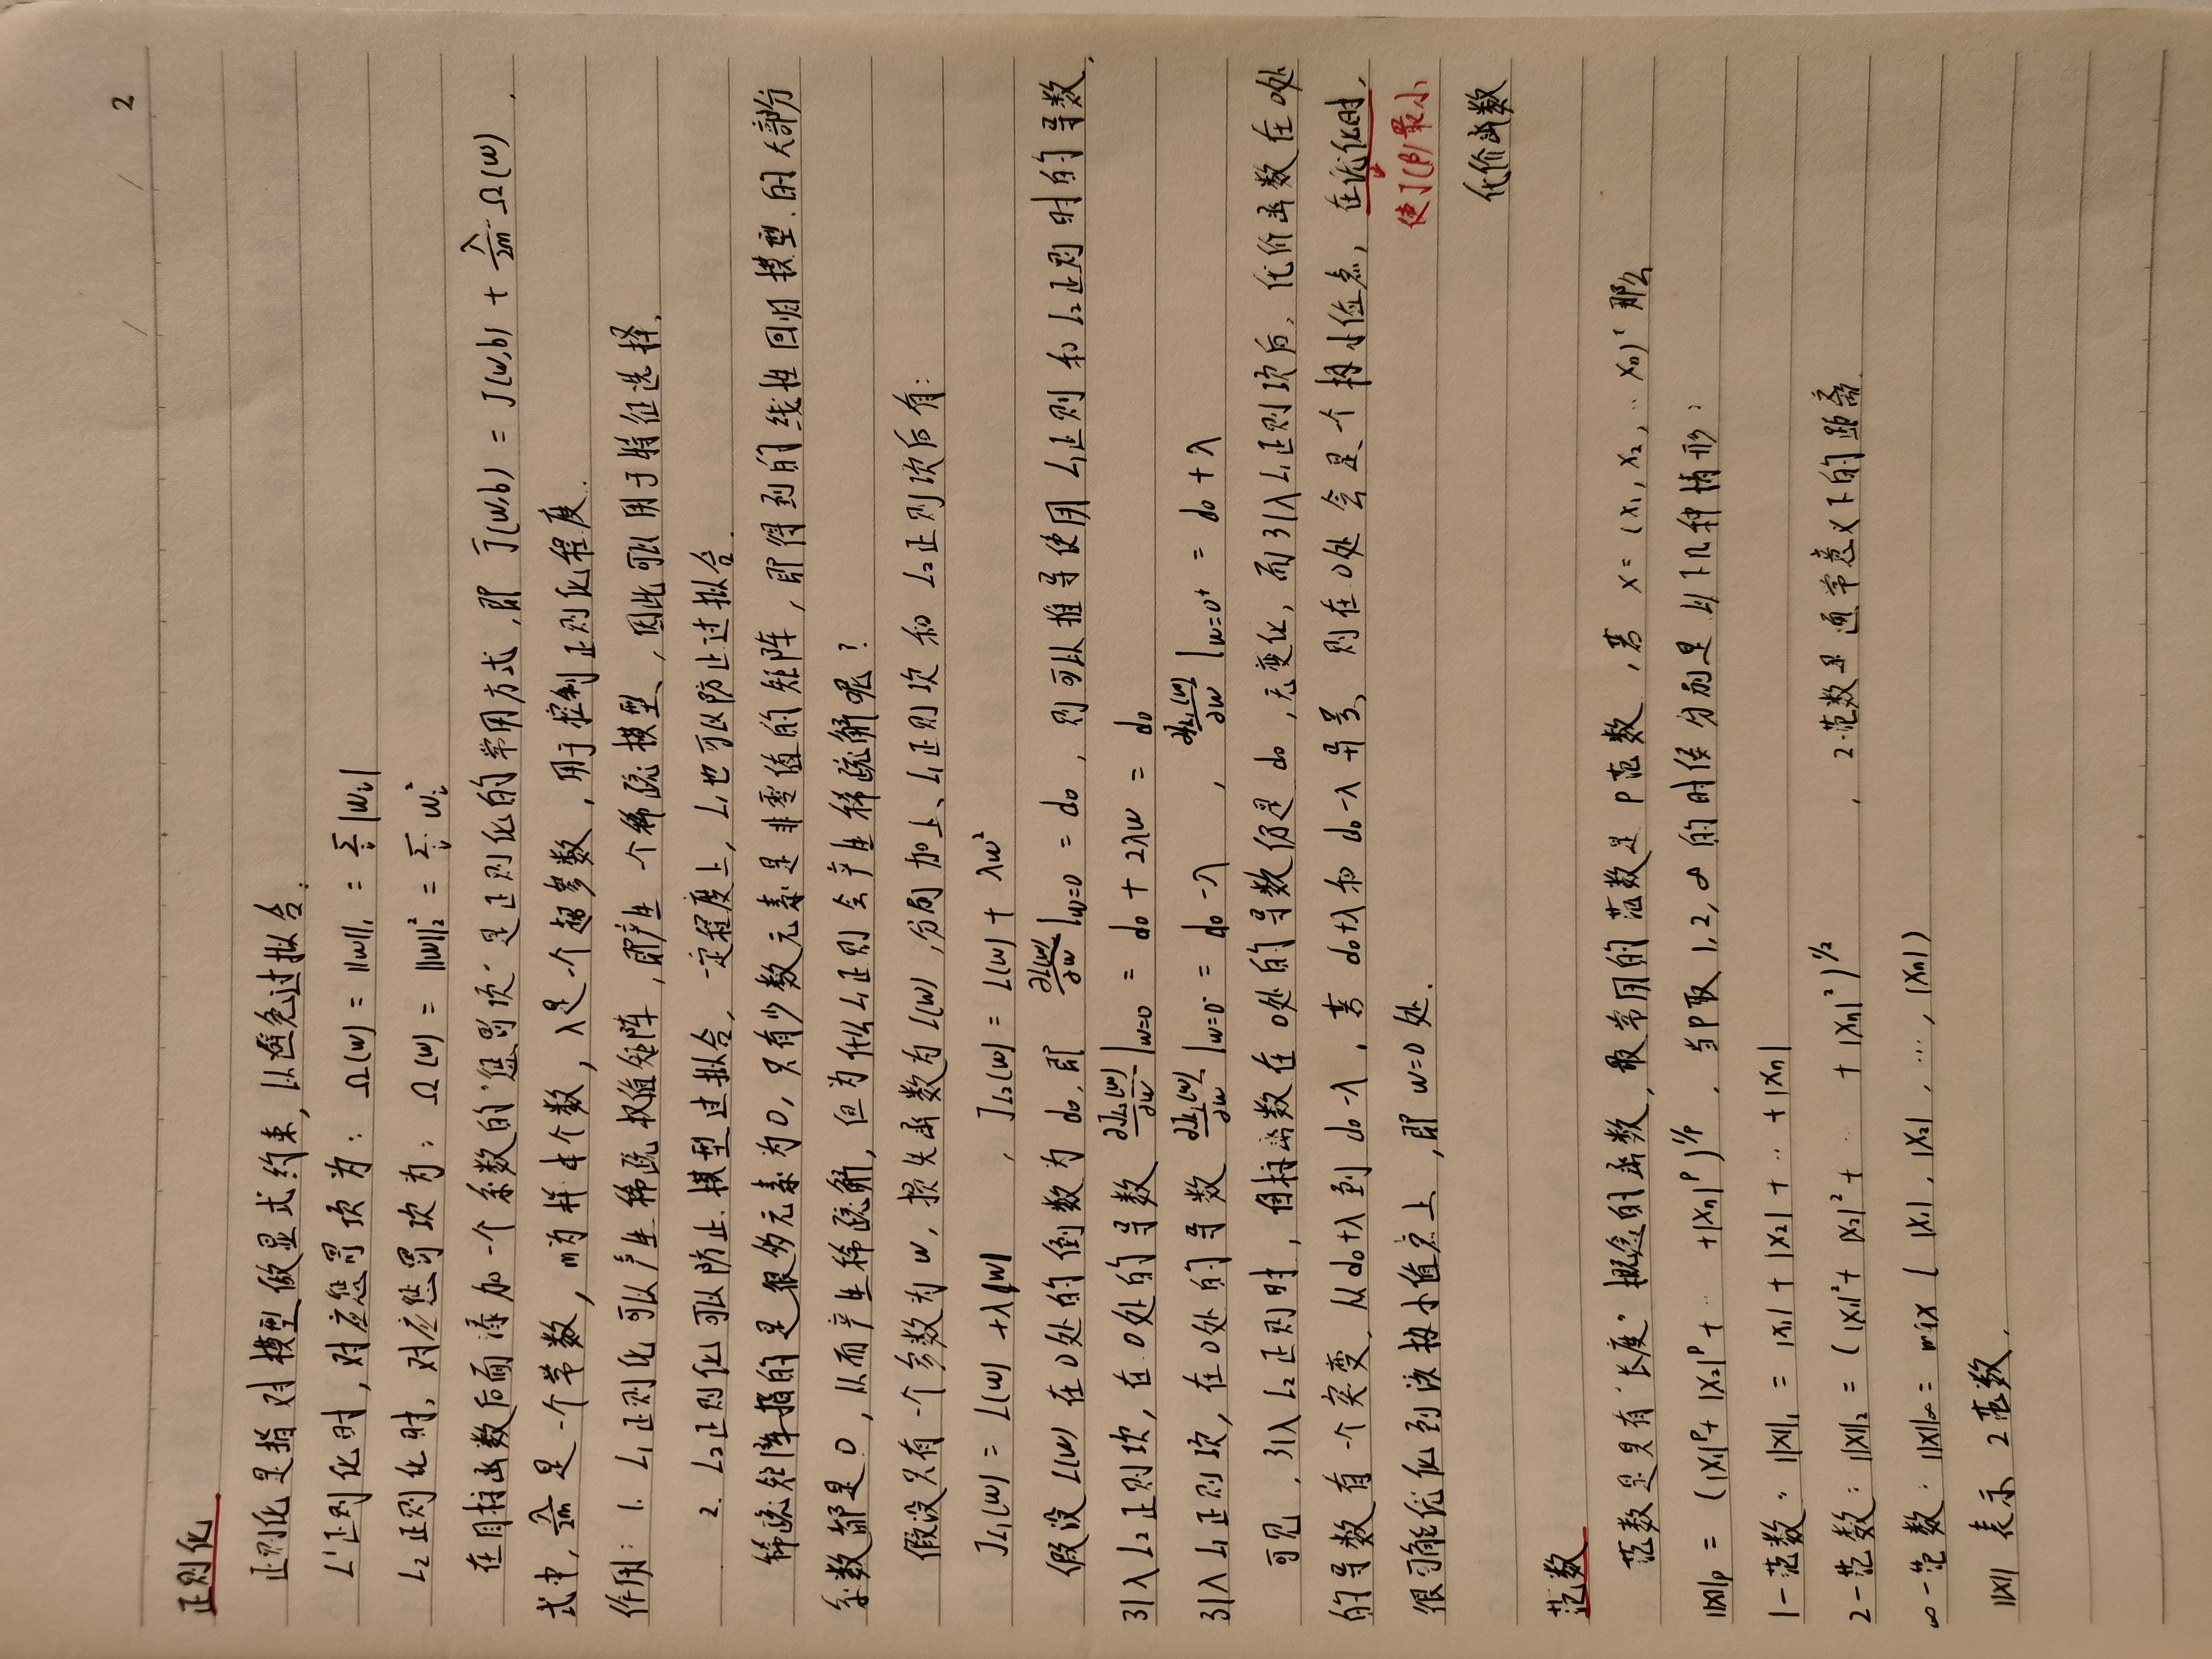 2
正则化
正则化是指对模型做显式约束，以避免过拟合.
L1正则化时，对应惩罚项为：Ω(w) = ||w||₁ = Σᵢ |wᵢ|
L₂正则化时，对应惩罚项为：Ω(w) = ||w||₂² = Σᵢ wᵢ²
在目标函数后面添加一个系数的"惩罚项"是正则化的常用方式，即 J̄(w,b) = J(w,b) + λ/2m Ω(w).
式中，λ/2m是一个常数，m为样本个数，λ是一个超参数，用于控制正则化程度.
作用：1. L₁正则化可以产生稀疏权值矩阵，即产生一个稀疏模型、因此可以用于特征选择.
2. L₂正则化可以防止模型过拟合，一定程度上，L₁也可以防止过拟合.
稀疏矩阵指的是很多元素为0，只有少数元素是非零值的矩阵，即得到的线性回归模型的大部份
系数都是0，从而产生稀疏解，但为什么L₁正则会产生稀疏解呢？
假设只有一个参数为w，损失函数为L(w)，分别加上、L₁正则项和L₂正则项后有：
J_L₁(w) = L(w) + λ|w| ， J_L₂(w) = L(w) + λw²
假设L(w)在0处的倒数为d₀，即 ∂L(w)/∂w |w=0 = d₀，则可以推导使用L₁正则和L₂正则时的导数，
引入L₂正则项，在0处的导数 ∂J_L₂(w)/∂w |w=0 = d₀ + 2λw = d₀
引入L₁正则项，在0处的导数 ∂J_L₁(w)/∂w |w=0⁻ = d₀ - λ ， ∂J_L₁(w)/∂w |w=0⁺ = d₀ + λ
可见，引入L₂正则时，目标函数在0处的导数仍是d₀，无变化，而引入L₁正则项后，代价函数在0处
的导数有一个突变，从d₀+λ到d₀-λ，若d₀+λ和d₀-λ异号，则在0处会是一个极小值点，在优化时，
使J(β)最小
很可能优化到该极小值点上，即w=0处.
代价函数
范数
范数是具有"长度"概念的函数，最常用的范数是P范数，若 x = (x₁, x₂, ‥ xₙ)' 那么
||x||p = (|x₁|ᵖ + |x₂|ᵖ + ‥ + |xₙ|ᵖ)^1/p ，当P取1, 2, ∞的时候分别是以下几种情形：
1-范数：||x||₁ = |x₁| + |x₂| + ‥ + |xₙ|
2-范数：||x||₂ = (|x₁|² + |x₂|² + ‥ + |xₙ|²)^1/2 ， 2-范数是通常意义下的距离.
∞-范数：||x||∞ = max (|x₁|, |x₂|, …, |xₙ|)
||x|| 表示2范数.